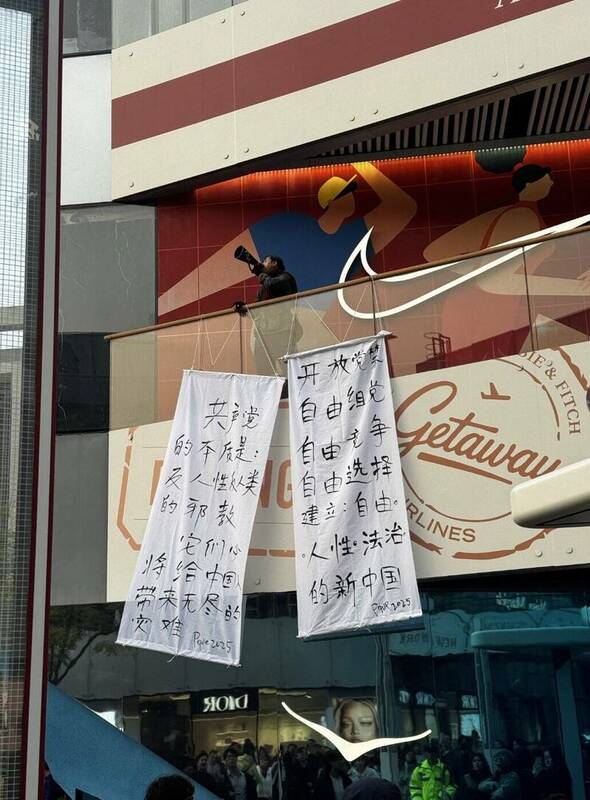 共产党
的本质是：
反人性反人类
的邪教
它们心
将给中国人
带来无尽的
灾难
Pope 2025
开放党禁
自由组党
自由竞争
自由选择
建立：自由。
。人性。法治
的新中国
Pope 2025
IE & FITCH
Getaway
AIRLINES
DIOR
NEW YORK